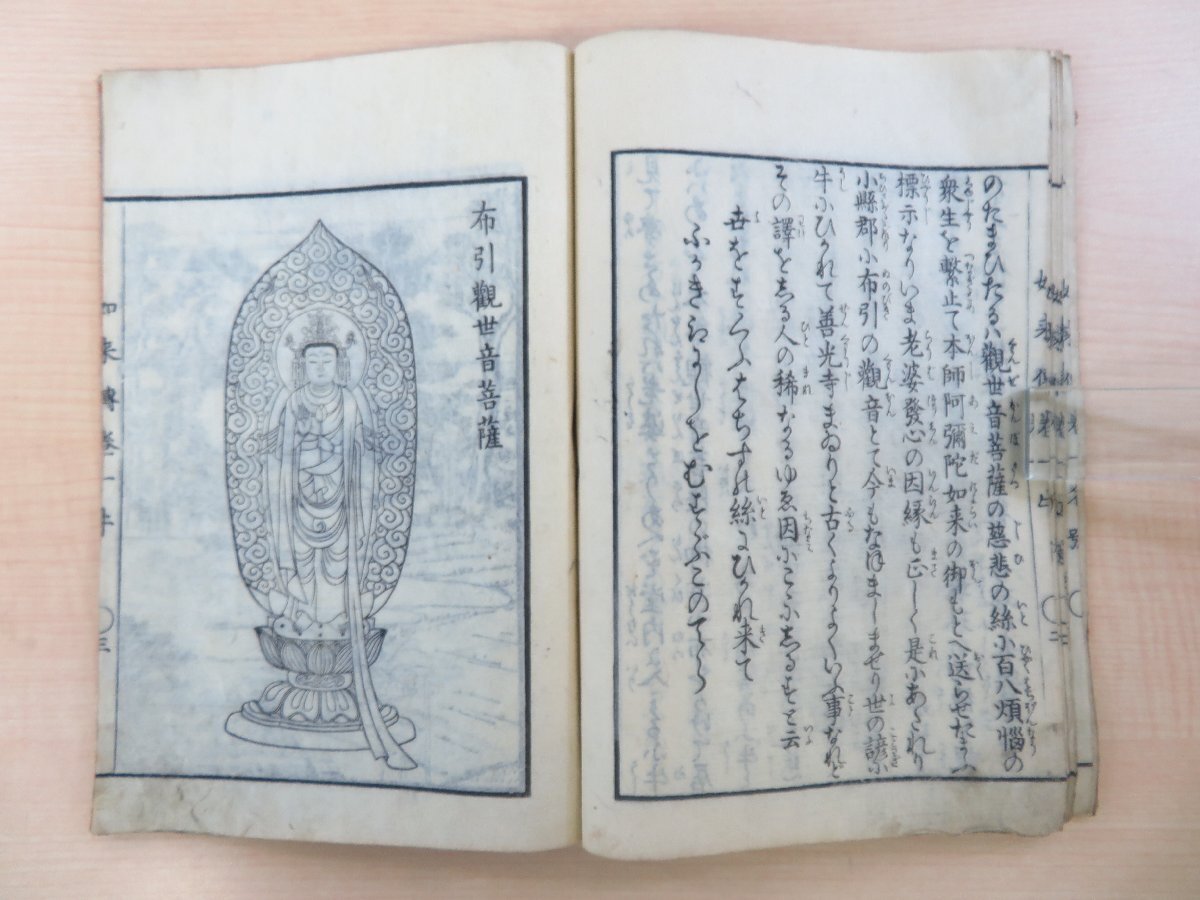 のたまひたるハ觀世音菩薩の慈悲の絲小百八煩悩の
衆生を繫止て本師阿彌陀如来の御もとへ送らせたまふ
標示なりいま老婆發心の因縁も正しく是小あたれり
小縣郡小布引の觀音とて今もなほましませり世の諺小
牛小ひかれて善光寺まゐりと古くよりよくいふ事なれど
その譯をしる人の稀なるゆゑ因小こゝ小しるすと云
世をすくふはちすの絲にひかれ来て
ふかきえにしをむすぶこのてら
布引觀世音菩薩
如来傳卷一